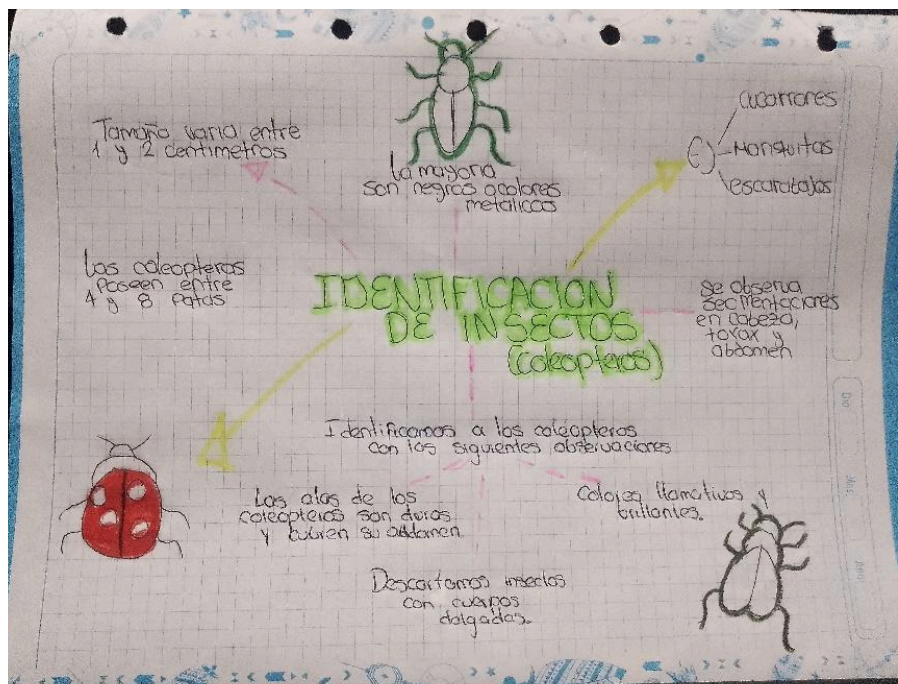 Tamaño varia entre
1 y 2 centimetros
la mayoria
son negros o colores
metalicos
cucarrones
Mariquitas
escarabajos
los coleopteros
poseen entre
4 y 8 patas
IDENTIFICACION
DE INSECTOS
(coleopteros)
se observa
secmentaciones
en cabeza,
torax y
abdomen
Identificamos a los coleopteros
con las siguientes observaciones
Las alas de los
coleopteros son duras
y cubren su abdomen.
Colores llamativos y
brillantes.
Descartamos insectos
con cuerpos
dolgados.